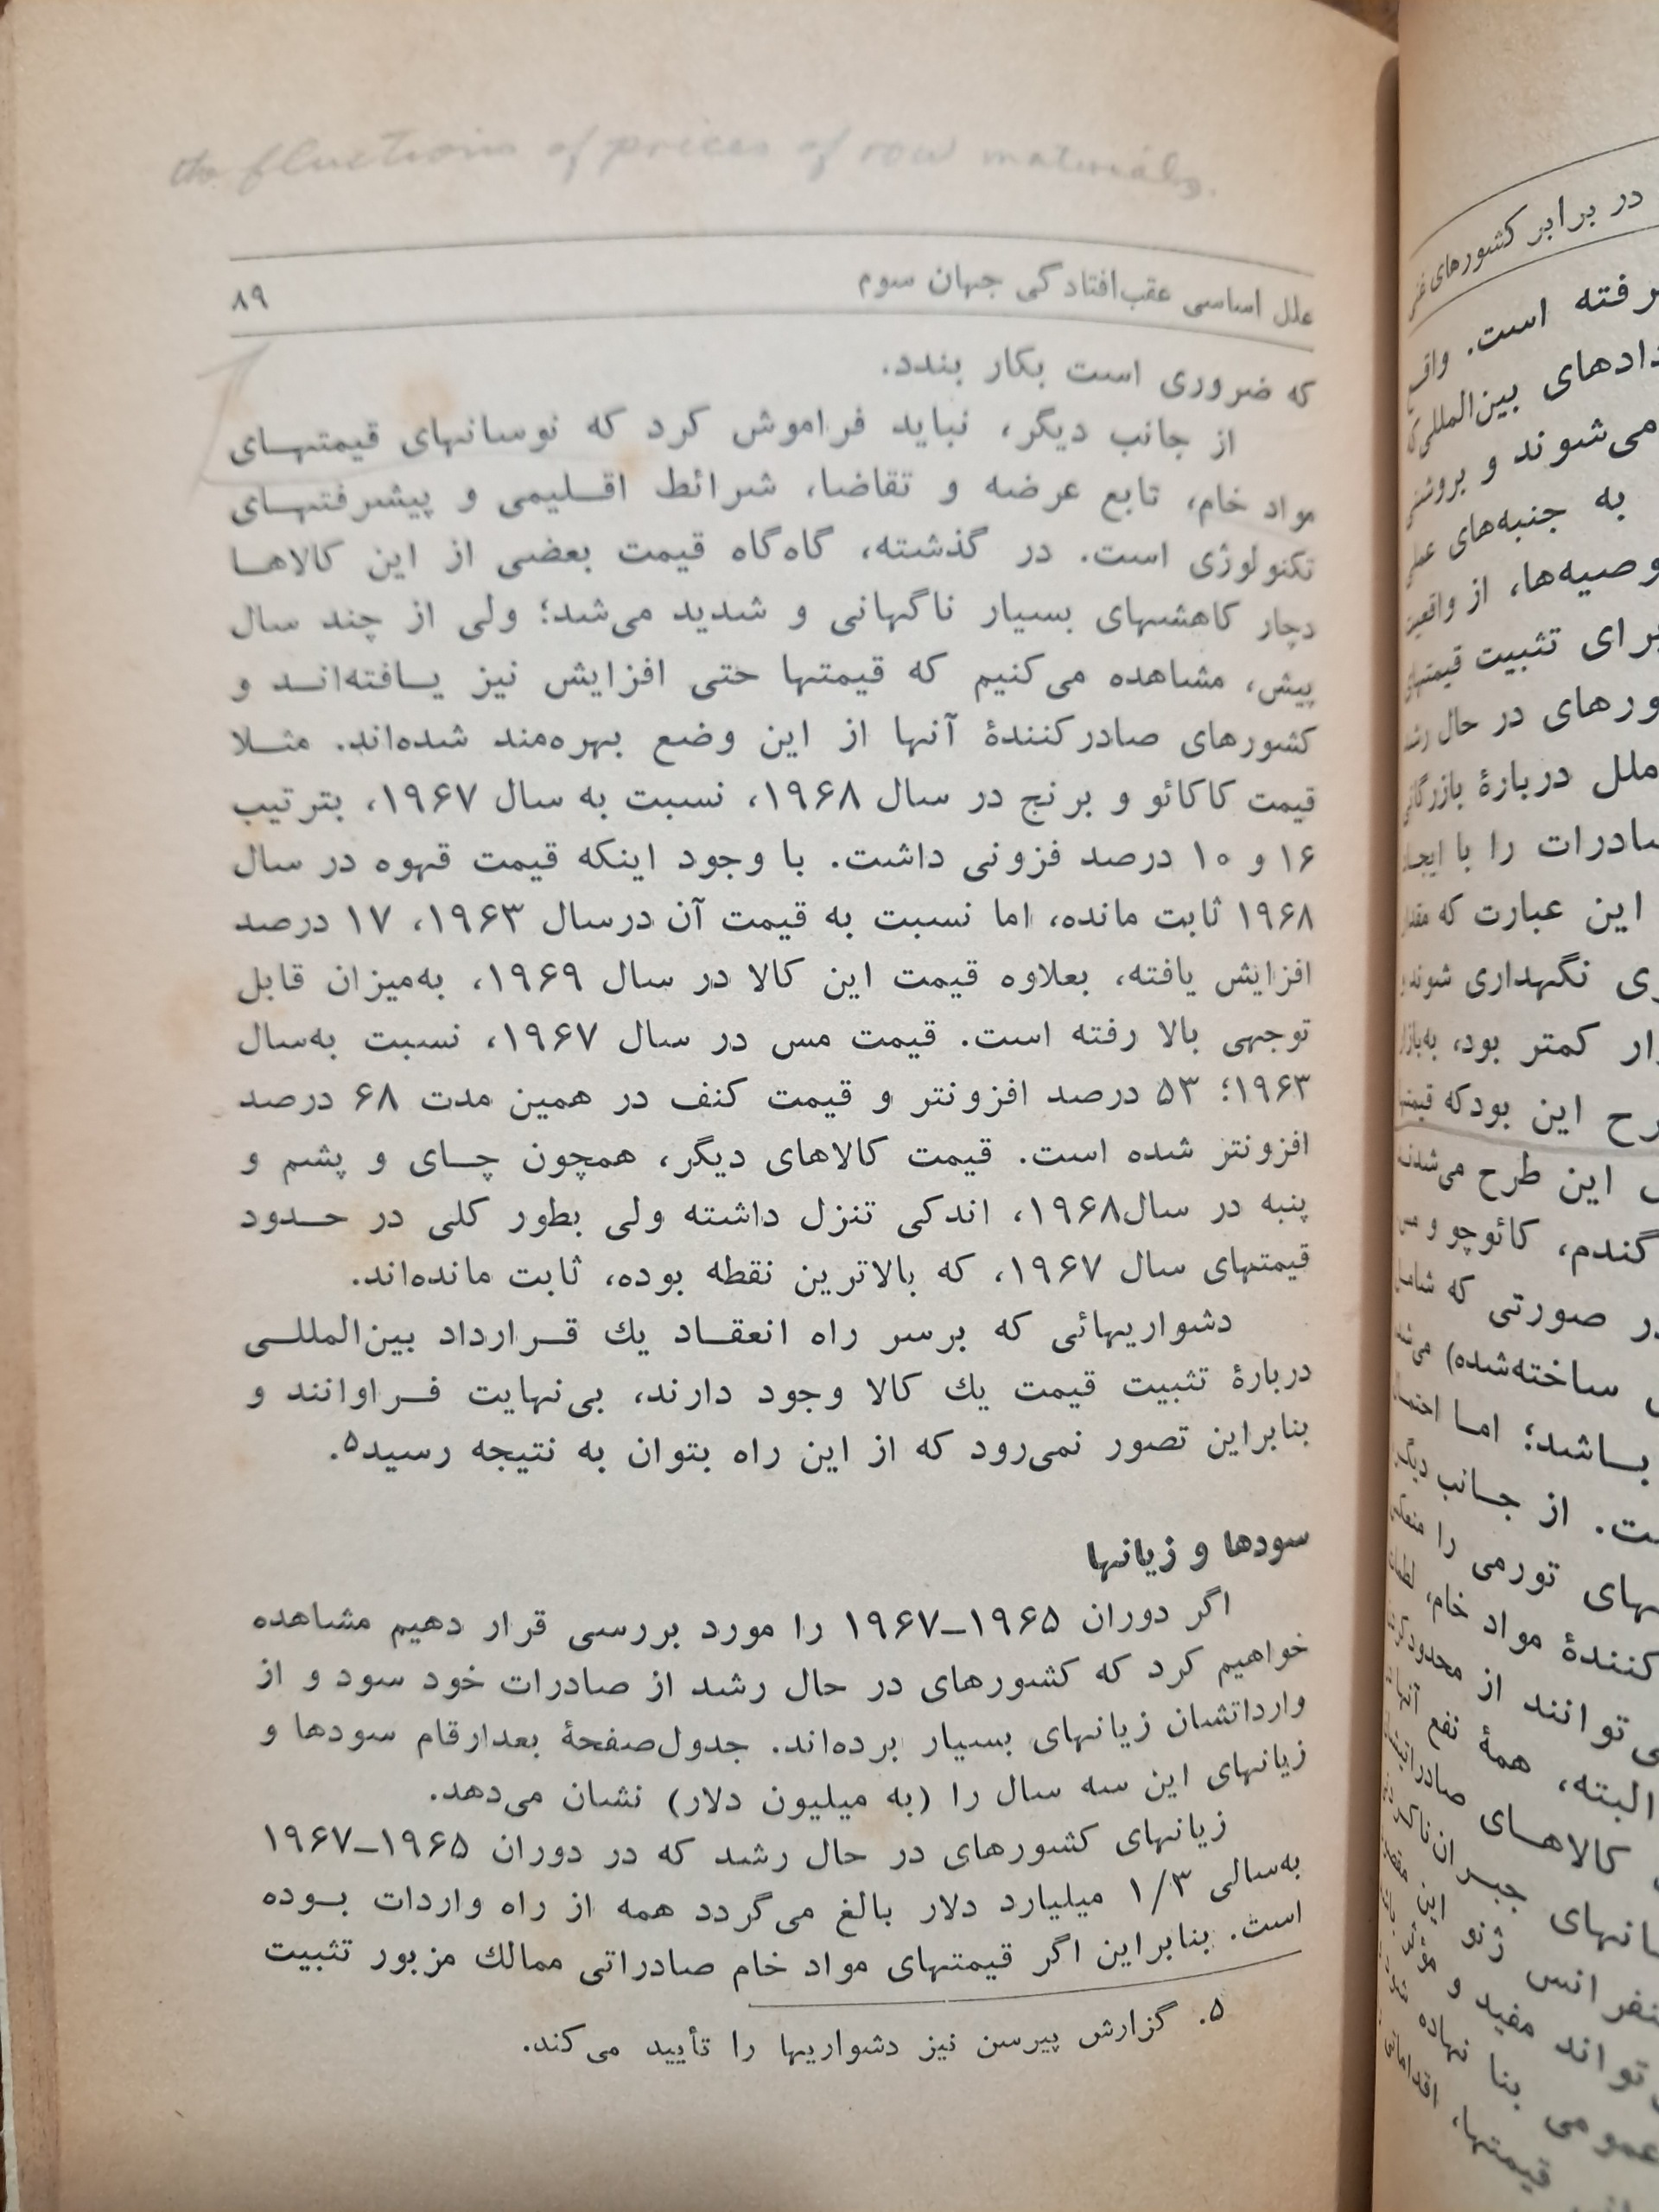 the fluctions of prices of row materials.
علل اساسی عقب‌افتادگی جهان سوم ۸۹
که ضروری است بکار بندد.
از جانب دیگر، نباید فراموش کرد که نوسانهای قیمتهای
مواد خام، تابع عرضه و تقاضا، شرائط اقلیمی و پیشرفتهای
تکنولوژی است. در گذشته، گاه‌گاه قیمت بعضی از این کالاها
دچار کاهشهای بسیار ناگهانی و شدید می‌شد؛ ولی از چند سال
پیش، مشاهده می‌کنیم که قیمتها حتی افزایش نیز یافته‌اند و
کشورهای صادرکنندۀ آنها از این وضع بهره‌مند شده‌اند. مثلا
قیمت کاکائو و برنج در سال ۱۹۶۸، نسبت به سال ۱۹۶۷، بترتیب
۱۶ و ۱۰ درصد فزونی داشت. با وجود اینکه قیمت قهوه در سال
۱۹۶۸ ثابت مانده، اما نسبت به قیمت آن درسال ۱۹۶۳، ۱۷ درصد
افزایش یافته، بعلاوه قیمت این کالا در سال ۱۹۶۹، به‌میزان قابل
توجهی بالا رفته است. قیمت مس در سال ۱۹۶۷، نسبت به‌سال
۱۹۶۳؛ ۵۳ درصد افزونتر و قیمت کنف در همین مدت ۶۸ درصد
افزونتر شده است. قیمت کالاهای دیگر، همچون چای و پشم و
پنبه در سال۱۹۶۸، اندکی تنزل داشته ولی بطور کلی در حدود
قیمتهای سال ۱۹۶۷، که بالاترین نقطه بوده، ثابت مانده‌اند.
دشواریهائی که برسر راه انعقاد یك قرارداد بین‌المللی
دربارۀ تثبیت قیمت یك کالا وجود دارند، بی‌نهایت فراوانند و
بنابراین تصور نمی‌رود که از این راه بتوان به نتیجه رسید۵.
سودها و زیانها
اگر دوران ۱۹۶۵–۱۹۶۷ را مورد بررسی قرار دهیم مشاهده
خواهیم کرد که کشورهای در حال رشد از صادرات خود سود و از
وارداتشان زیانهای بسیار برده‌اند. جدول‌صفحۀ بعدارقام سودها و
زیانهای این سه سال را (به میلیون دلار) نشان می‌دهد.
زیانهای کشورهای در حال رشد که در دوران ۱۹۶۵–۱۹۶۷
به‌سالی ۱/۳ میلیارد دلار بالغ می‌گردد همه از راه واردات بوده
است. بنابراین اگر قیمتهای مواد خام صادراتی ممالك مزبور تثبیت
۵. گزارش پیرسن نیز دشواریها را تأیید می‌کند.
در برابر کشورهای
رفته است.
دادهای بین‌المللی
می‌شوند و
به جنبه‌های
وصیه‌ها، از
برای تثبیت
ورهای در حال
ملل دربارۀ
صادرات را با
این عبارت که
ری نگهداری شوند
کمتر بود،
رح این بودکه
این طرح می‌شدند
گندم، کائوچو و مس
در صورتی که
ساخته‌شده)
باشد؛ اما
ست. از جانب دیگر
تورمی را
کنندۀ مواد خام،
ی‌توانند از
البته، همۀ نفع
کالاهای
ژنو این
تواند مفید و
بنا نهاده
قیمتها،